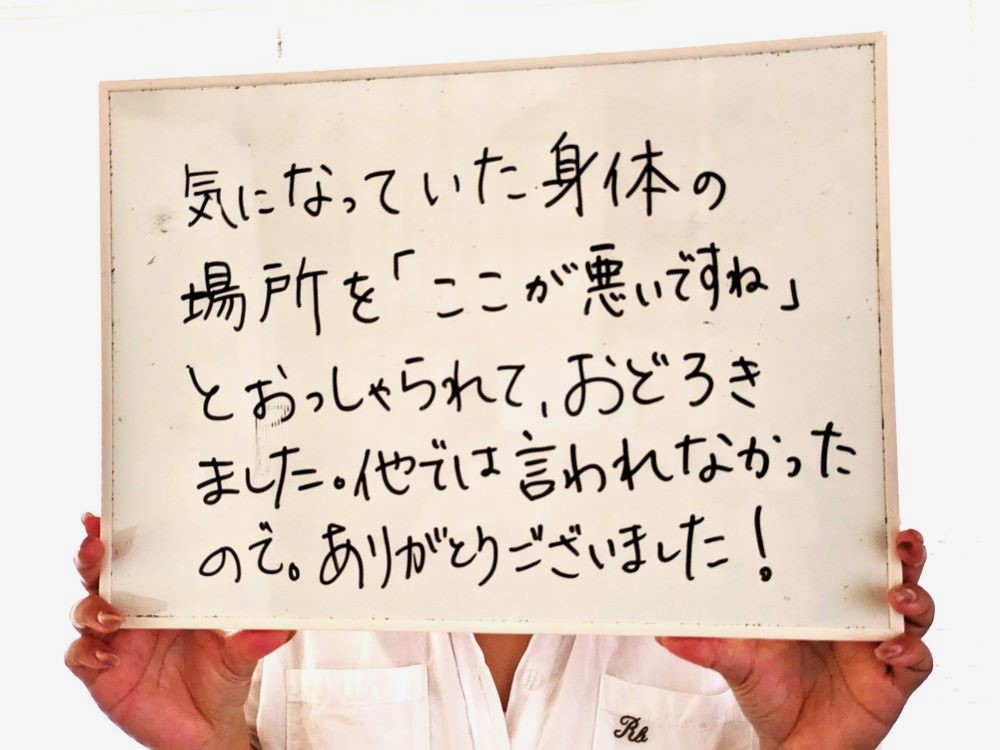 気になっていた身体の
場所を「ここが悪いですね」
とおっしゃられて、おどろき
ました。他では言われなかった
ので。ありがとうございました!